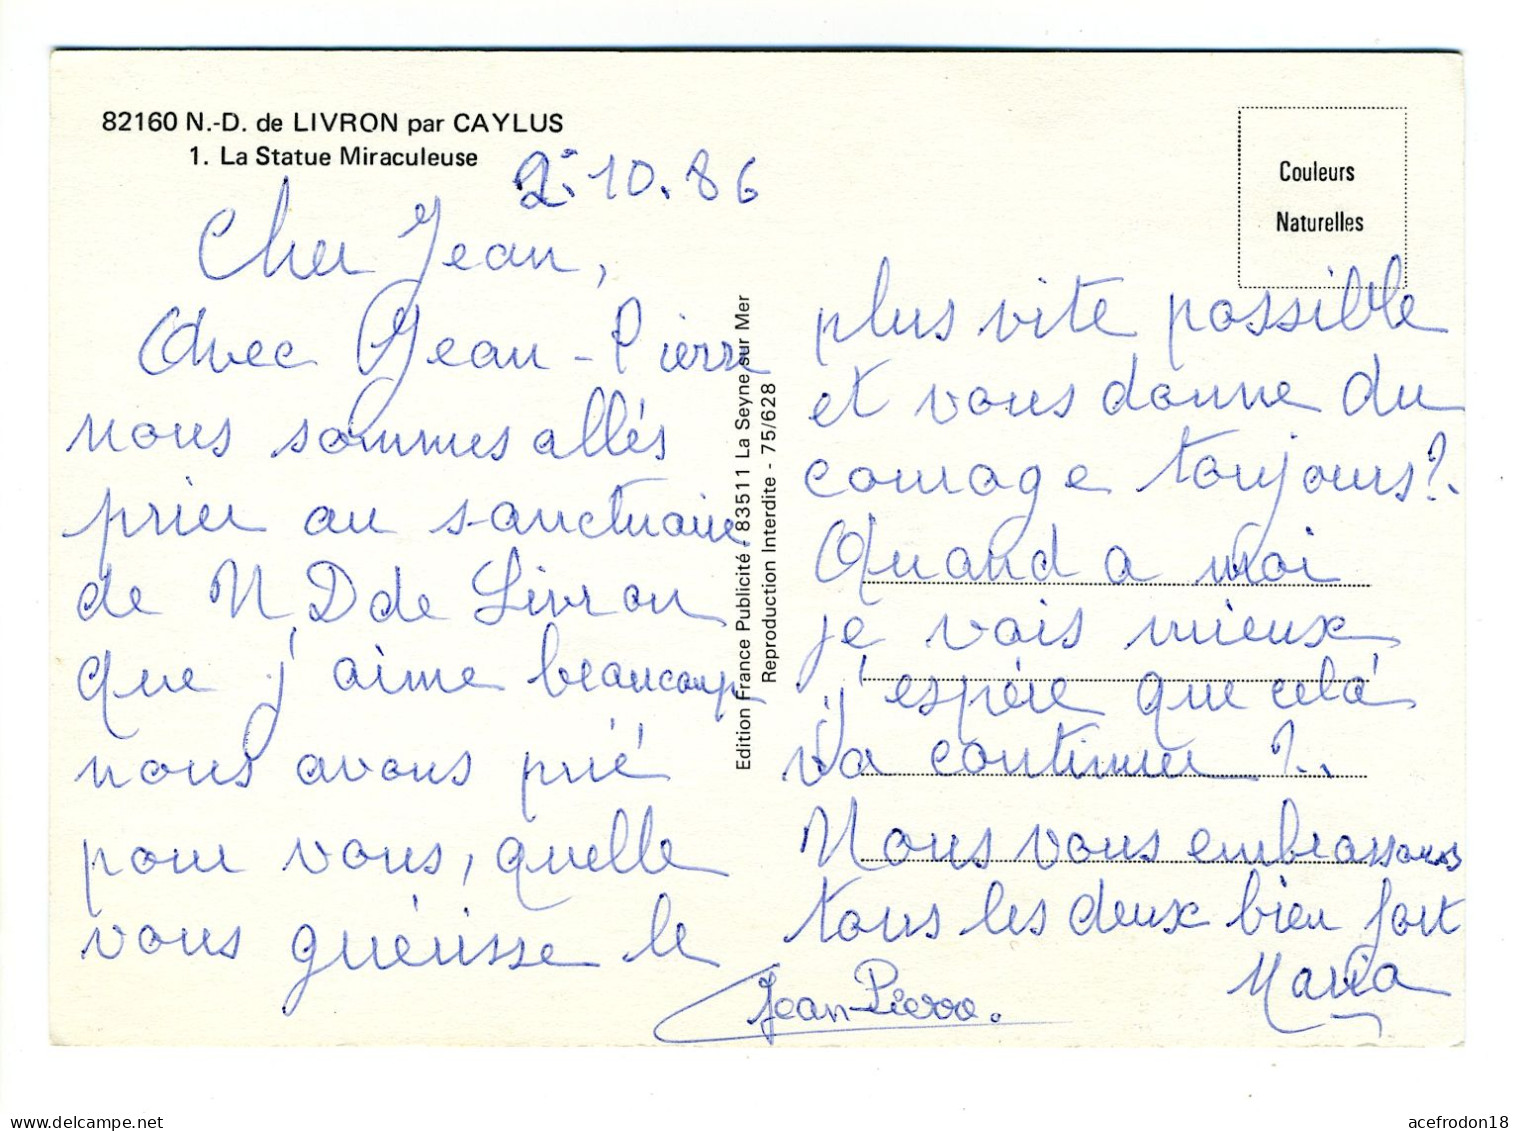 82160 N.-D. de LIVRON par CAYLUS
1. La Statue Miraculeuse
2.10.86
Cher Jean,
Avec Jean-Pierre
nous sommes allés
prier au sanctuaire
de N.D de Livron
que j'aime beaucoup
nous avons prié
pour vous, qu'elle
vous guérisse le
plus vite possible
et vous donne du
courage toujours?.
Quand a moi
je vais mieux
j'espère que celà
va continuer ?..
Nous vous embrassons
tous les deux bien fort
Maria
Jean-Pierre.
Edition France Publicité - 83511 La Seyne sur Mer
Reproduction Interdite - 75/628
Couleurs
Naturelles
acefrodon18